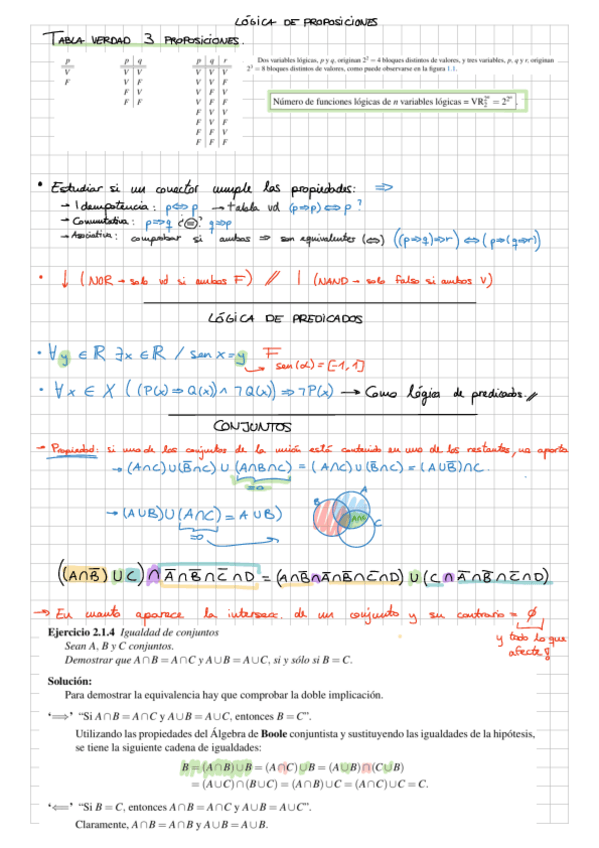 LÓGICA DE PROPOSICIONES
TABLA VERDAD 3 PROPOSICIONES.
p
V
F
p q
V V
V F
F V
F F
p q r
V V V
V V F
V F V
V F F
F V V
F V F
F F V
F F F
Dos variables lógicas, p y q, originan 2² = 4 bloques distintos de valores, y tres variables, p, q y r, originan
2³ = 8 bloques distintos de valores, como puede observarse en la figura 1.1.
Número de funciones lógicas de n variables lógicas = VR₂^{2ⁿ} = 2^{2ⁿ}.
• Estudiar si un conector cumple las propiedades: ⇒
→ Idempotencia: p⇔p → tabla vd (p⇒p)⇔p?
→ Conmutativa: p⇒q ¿≡? q⇒p
→ Asociativa: comprobar si ambas ⇒ son equivalentes (⇔) ((p⇒q)⇒r) ⇔ (p⇒(q⇒r))
• ↓ (NOR → solo vd si ambos F) // | (NAND → solo falso si ambos V)
LÓGICA DE PREDICADOS
• ∀y ∈ ℝ ∃x ∈ ℝ / sen x = y F
sen(α) = [-1, 1]
• ∀x ∈ X ((P(x) ⇒ Q(x)) ∧ ¬Q(x)) ⇒ ¬P(x) → Como lógica de predicados.//
CONJUNTOS
→ Propiedad: si uno de los conjuntos de la unión está contenido en uno de los restantes, no aporta
→ (A∩C)∪(B̄∩C)∪(A∩B∩C) = (A∩C)∪(B̄∩C) = (A∪B̄)∩C.
→ (A∪B)∪(A∩C) = A∪B)
A
B
C
((A∩B̄)∪C)∩Ā∩B̄∩C̄∩D = (A∩B̄∩Ā∩B̄∩C̄∩D)∪(C∩Ā∩B̄∩C̄∩D)
→ En cuanto aparece la intersecc. de un conjunto y su contrario = ∅
y todo lo que
afecte!
Ejercicio 2.1.4 Igualdad de conjuntos
Sean A, B y C conjuntos.
Demostrar que A∩B = A∩C y A∪B = A∪C, si y sólo si B = C.
Solución:
Para demostrar la equivalencia hay que comprobar la doble implicación.
‘⟹’ “Si A∩B = A∩C y A∪B = A∪C, entonces B = C”.
Utilizando las propiedades del Álgebra de Boole conjuntista y sustituyendo las igualdades de la hipótesis,
se tiene la siguiente cadena de igualdades:
B = (A∩B)∪B = (A∩C)∪B = (A∪B)∩(C∪B)
= (A∪C)∩(B∪C) = (A∩B)∪C = (A∩C)∪C = C.
‘⟸’ “Si B = C, entonces A∩B = A∩C y A∪B = A∪C”.
Claramente, A∩B = A∩B y A∪B = A∪B.